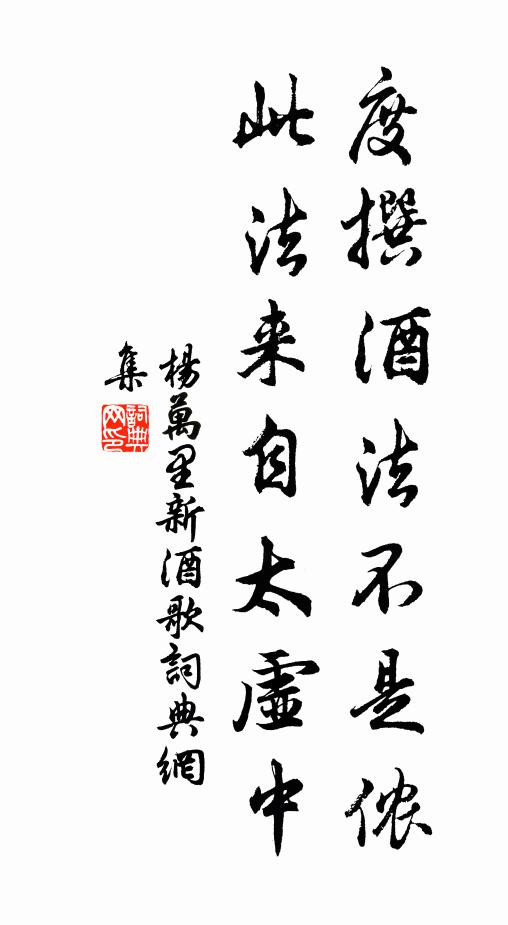 度撰酒法不是侬
此法来自太虚中
楊萬里新酒歌詞典網
集
詞典
网印